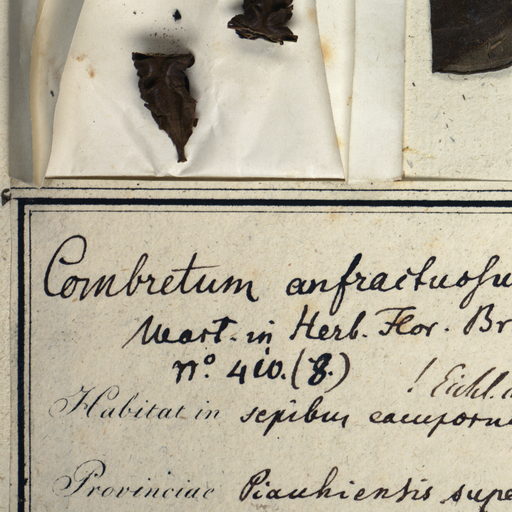 Combretum anfractuosu
Mart. in Herb. Flor. Br
n° 410. (8.)
! Eichl.
Habitat in sepibus camporu
Provinciae Piauhiensis supe